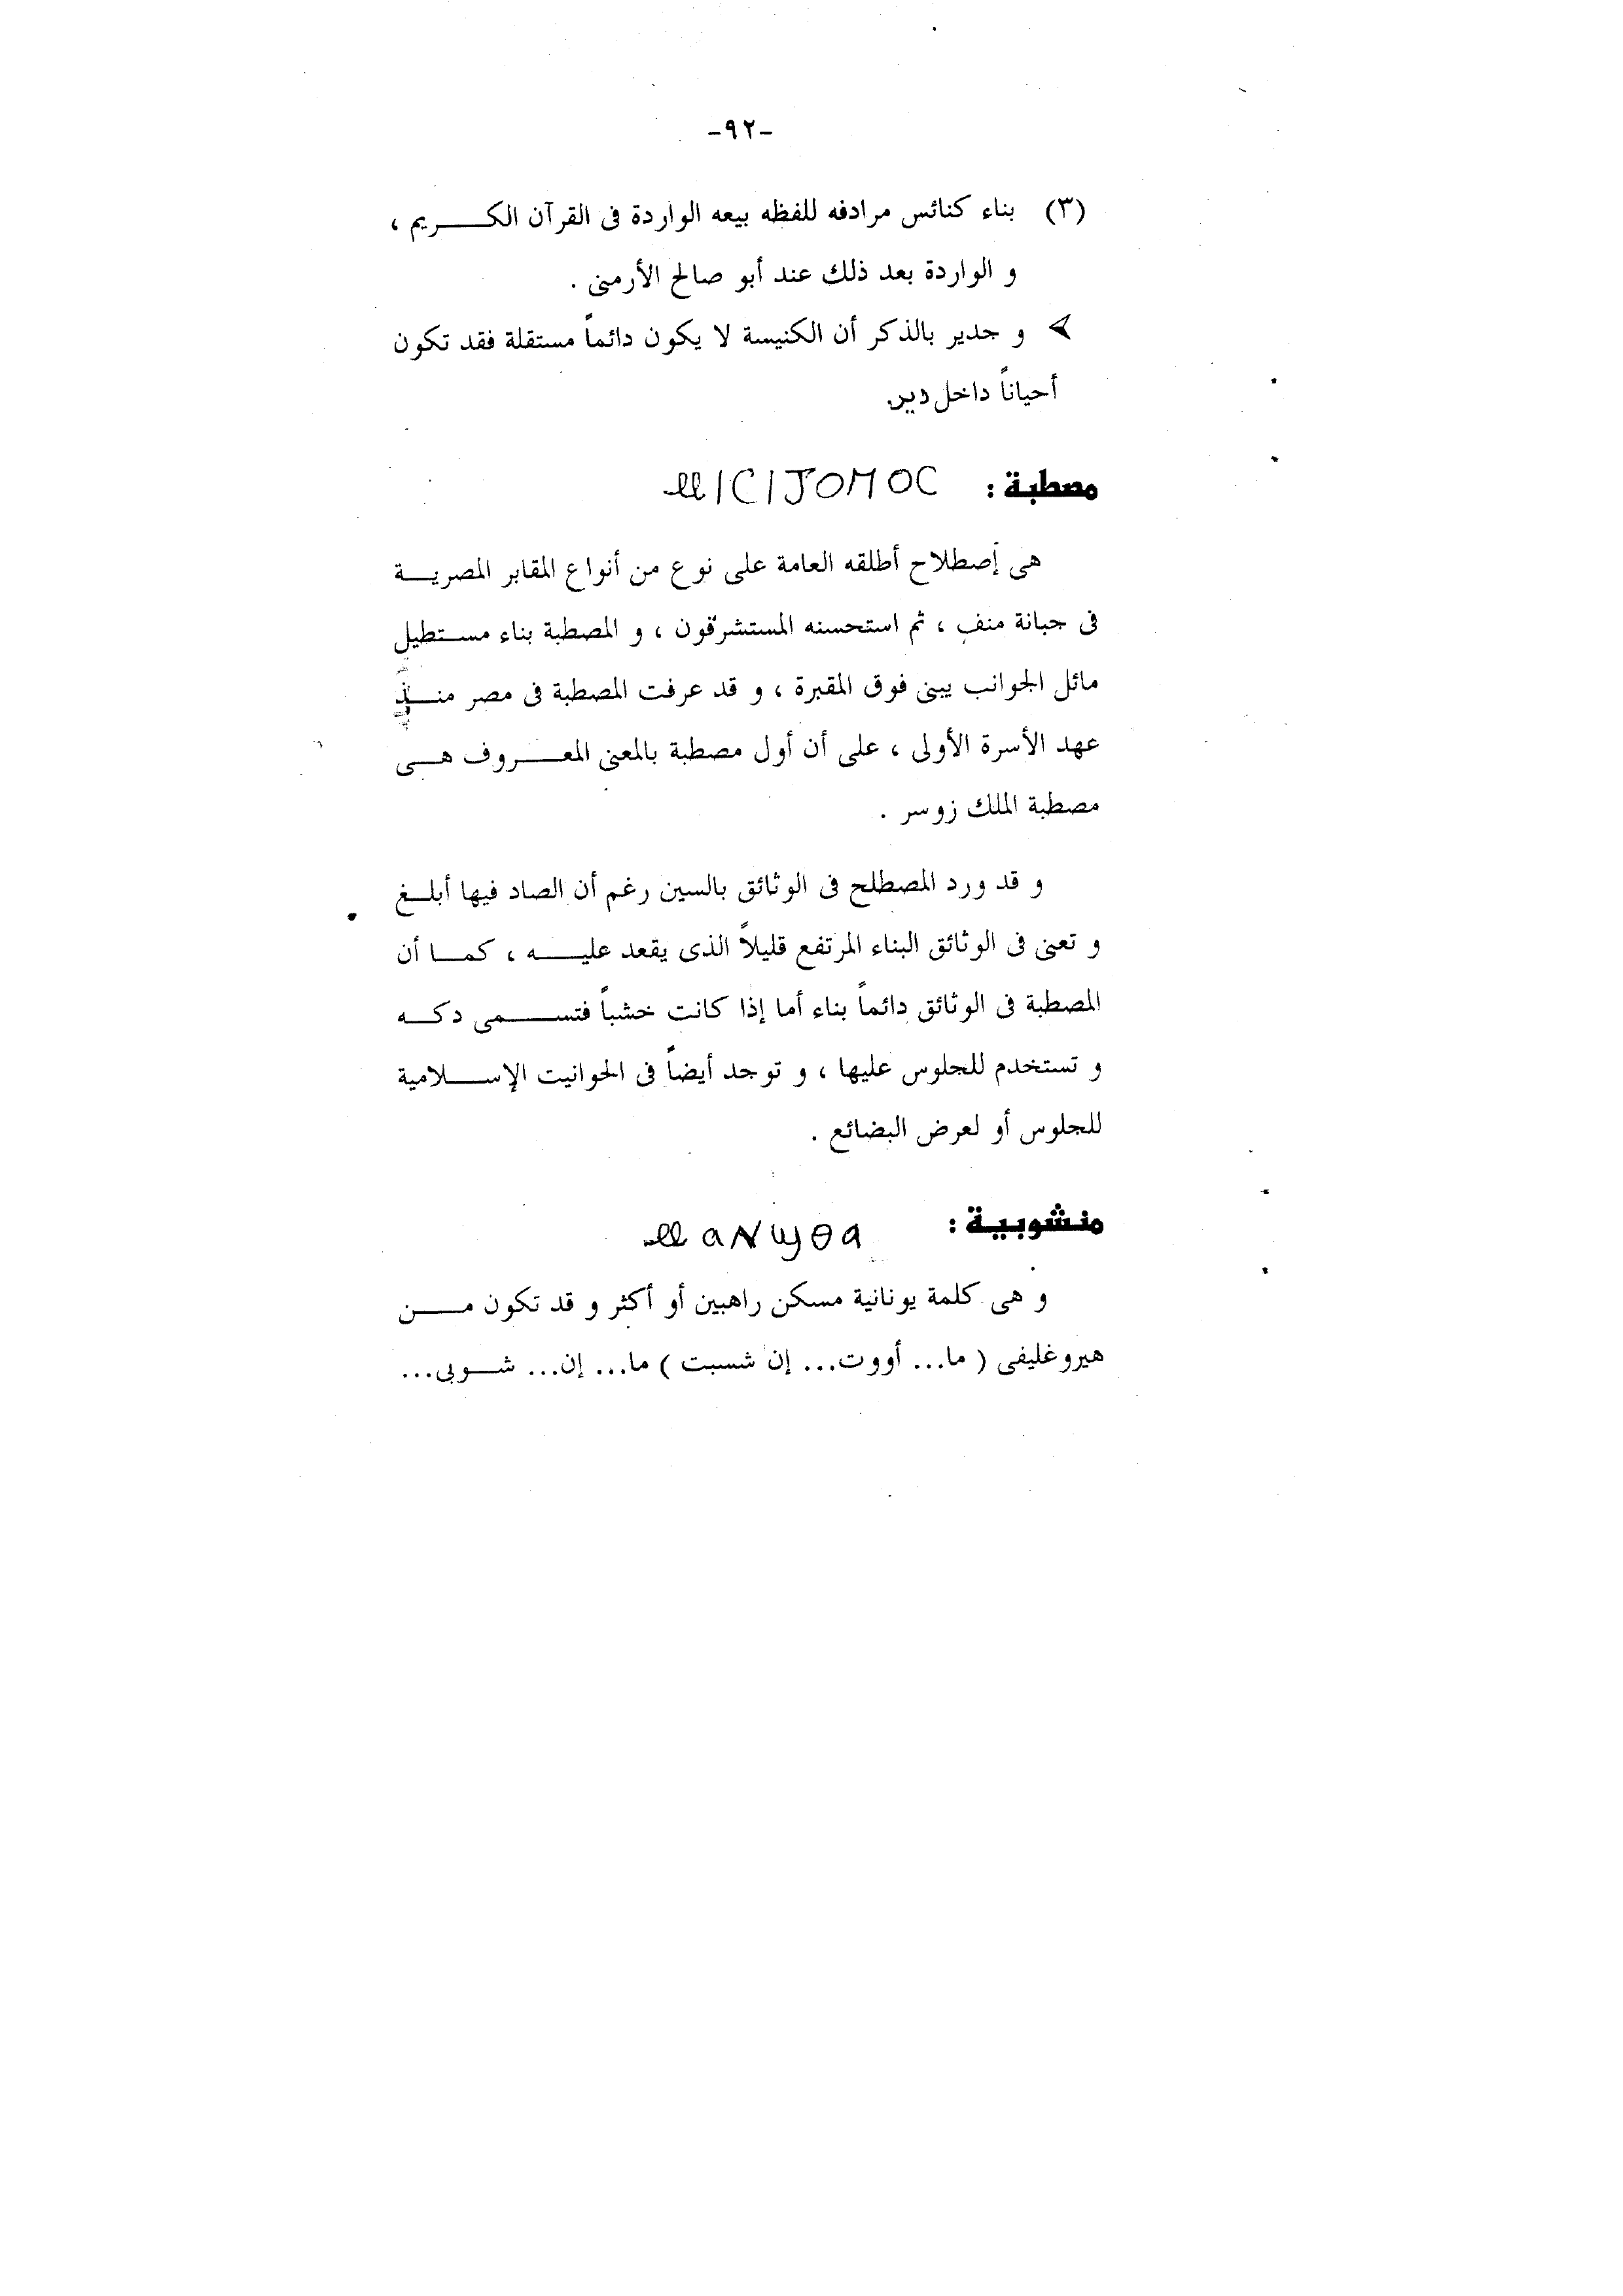 -٩٢-
(٣) بناء كنائس مرادفه للفظه بيعه الواردة فى القرآن الكـــــريم ،
و الواردة بعد ذلك عند أبو صالح الأرمنى .
و جدير بالذكر أن الكنيسة لا يكون دائماً مستقلة فقد تكون
أحياناً داخل دير.
مصطبة :
هى إصطلاح أطلقه العامة على نوع من أنواع المقابر المصريـــة
فى جبانة منف ، ثم استحسنه المستشرقون ، و المصطبة بناء مســتطيل
مائل الجوانب يبنى فوق المقبرة ، و قد عرفت المصطبة فى مصر منــذ
عهد الأسرة الأولى ، على أن أول مصطبة بالمعنى المعـــروف هـــى
مصطبة الملك زوسر .
و قد ورد المصطلح فى الوثائق بالسين رغم أن الصاد فيها أبلــغ
و تعنى فى الوثائق البناء المرتفع قليلاً الذى يقعد عليــــه ، كمـــا أن
المصطبة فى الوثائق دائماً بناء أما إذا كانت خشباً فتســــمى دكـــه
و تستخدم للجلوس عليها ، و توجد أيضاً فى الحوانيت الإســـلامية
للجلوس أو لعرض البضائع .
منشوبية :
و هى كلمة يونانية مسكن راهبين أو أكثر و قد تكون مـــــن
هيروغليفى ( ما... أووت... إن شسبت ) ما... إن... شـــوبى...